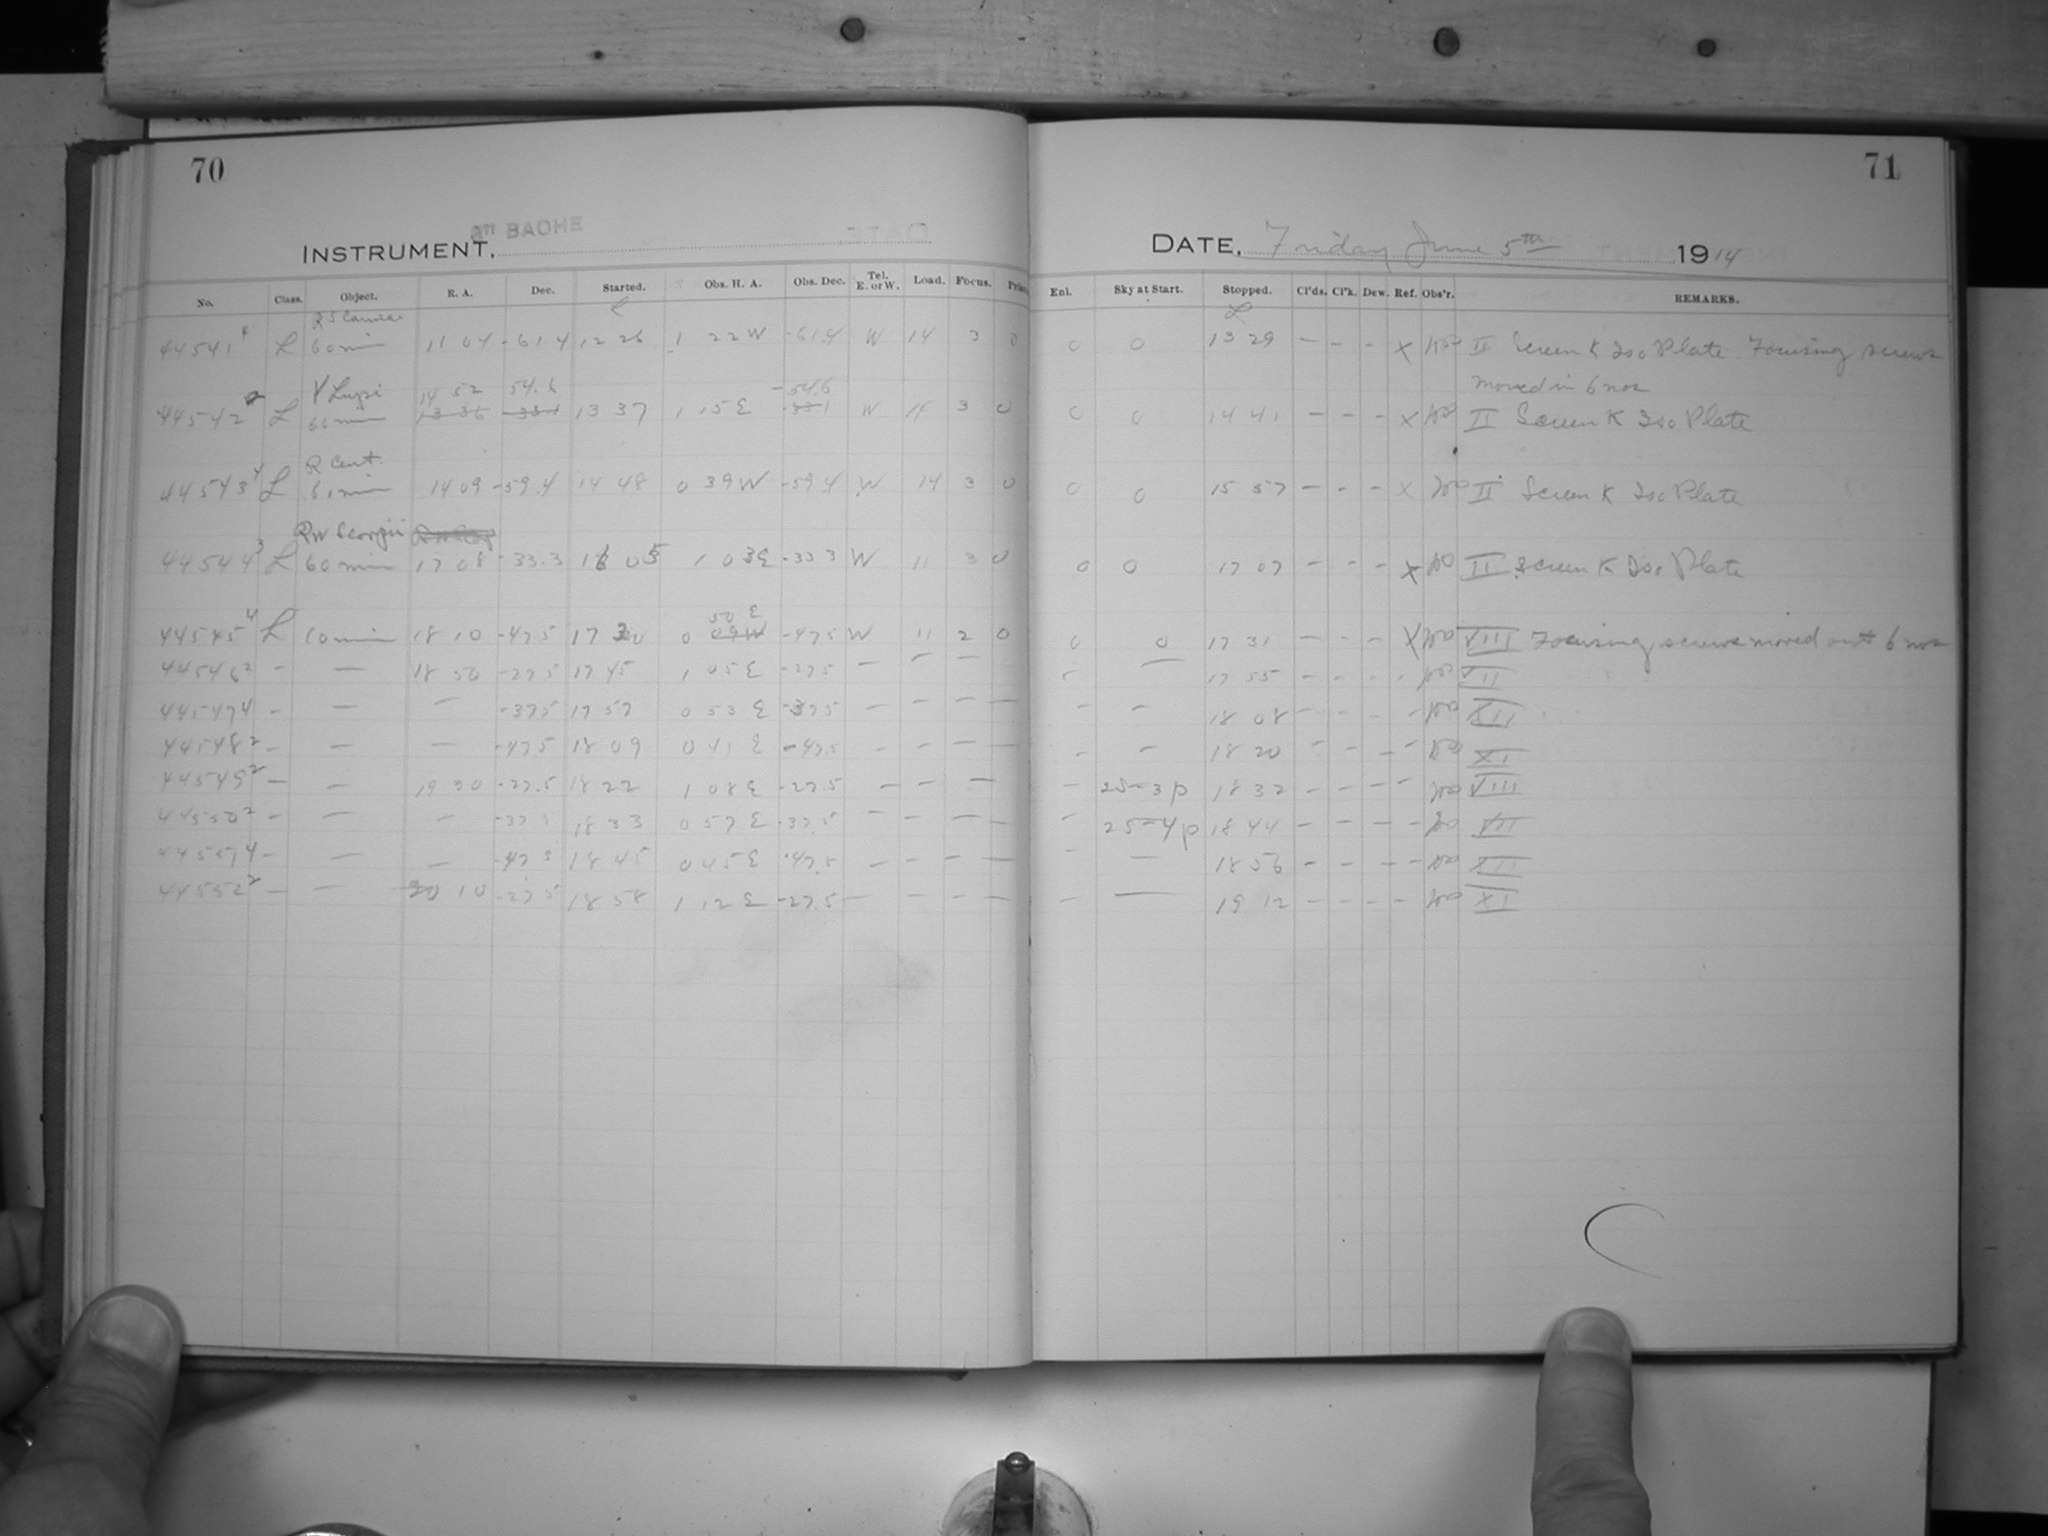 70
8" BACHE
INSTRUMENT,
No. Class. Object. R. A. Dec. Started. Obs. H. A. Obs. Dec. Tel. E. or W. Load. Focus.
44541 4 L 60 min 11 04 -61 4 12 26 1 22 W -61.4 W 14 3 0
Y Lupi 14 52 54.6 -54.6
44542 2 L 60 min 13 37 1 15 E W 14 3 0
R Cent.
44543 4 L 60 min 14 09 -59.4 14 48 0 39 W -59 4 W 14 3 0
RW Scorpii
44544 3 L 60 min 17 08 -33.3 16 05 1 03 E -33 3 W 11 3 0
50 E
44545 4 L 10 min 18 10 -47 5 17 20 0 09 W -47 5 W 11 2 0
44546 2 - — 18 50 -27 5 17 45 1 05 E -27 5 — — —
44547 4 - — — -37 5 17 57 0 53 E -37 5 — — — —
44548 2 - — — -47 5 18 09 0 41 E -47.5 — — — —
44549 2 — — 19 30 -27.5 18 22 1 08 E -27.5 — — —
44550 2 - — — -37 5 18 33 0 57 E -37.5 — — — —
44551 4 - — — -47 5 18 45 0 45 E -47.5 — — — —
44552 2 — — 20 10 -27 5 18 58 1 12 E -27.5 — — — —
71
DATE, Friday June 5th 1914
Enl. Sky at Start. Stopped. Cl'ds. Cl'k. Dew. Ref. Obs'r. REMARKS.
0 0 13 29 — - - X II Screen K Iso Plate Focusing screws
moved in 6 nos
0 0 14 41 - - - X II Screen K Iso Plate
0 0 15 57 - - - X II Screen K Iso Plate
0 0 17 07 - - - X II Screen K Iso Plate
0 0 17 31 - - - X VIII Focusing screws moved out 6 nos
- — 17 55 - - - - VII
- - 18 08 - - - - XII
- - 18 20 - - - - XI
- 25-3p 18 32 - - - - VIII
- 25-4p 18 44 - - - - VII
- — 18 56 - - - - XII
- — 19 12 - - - - XI